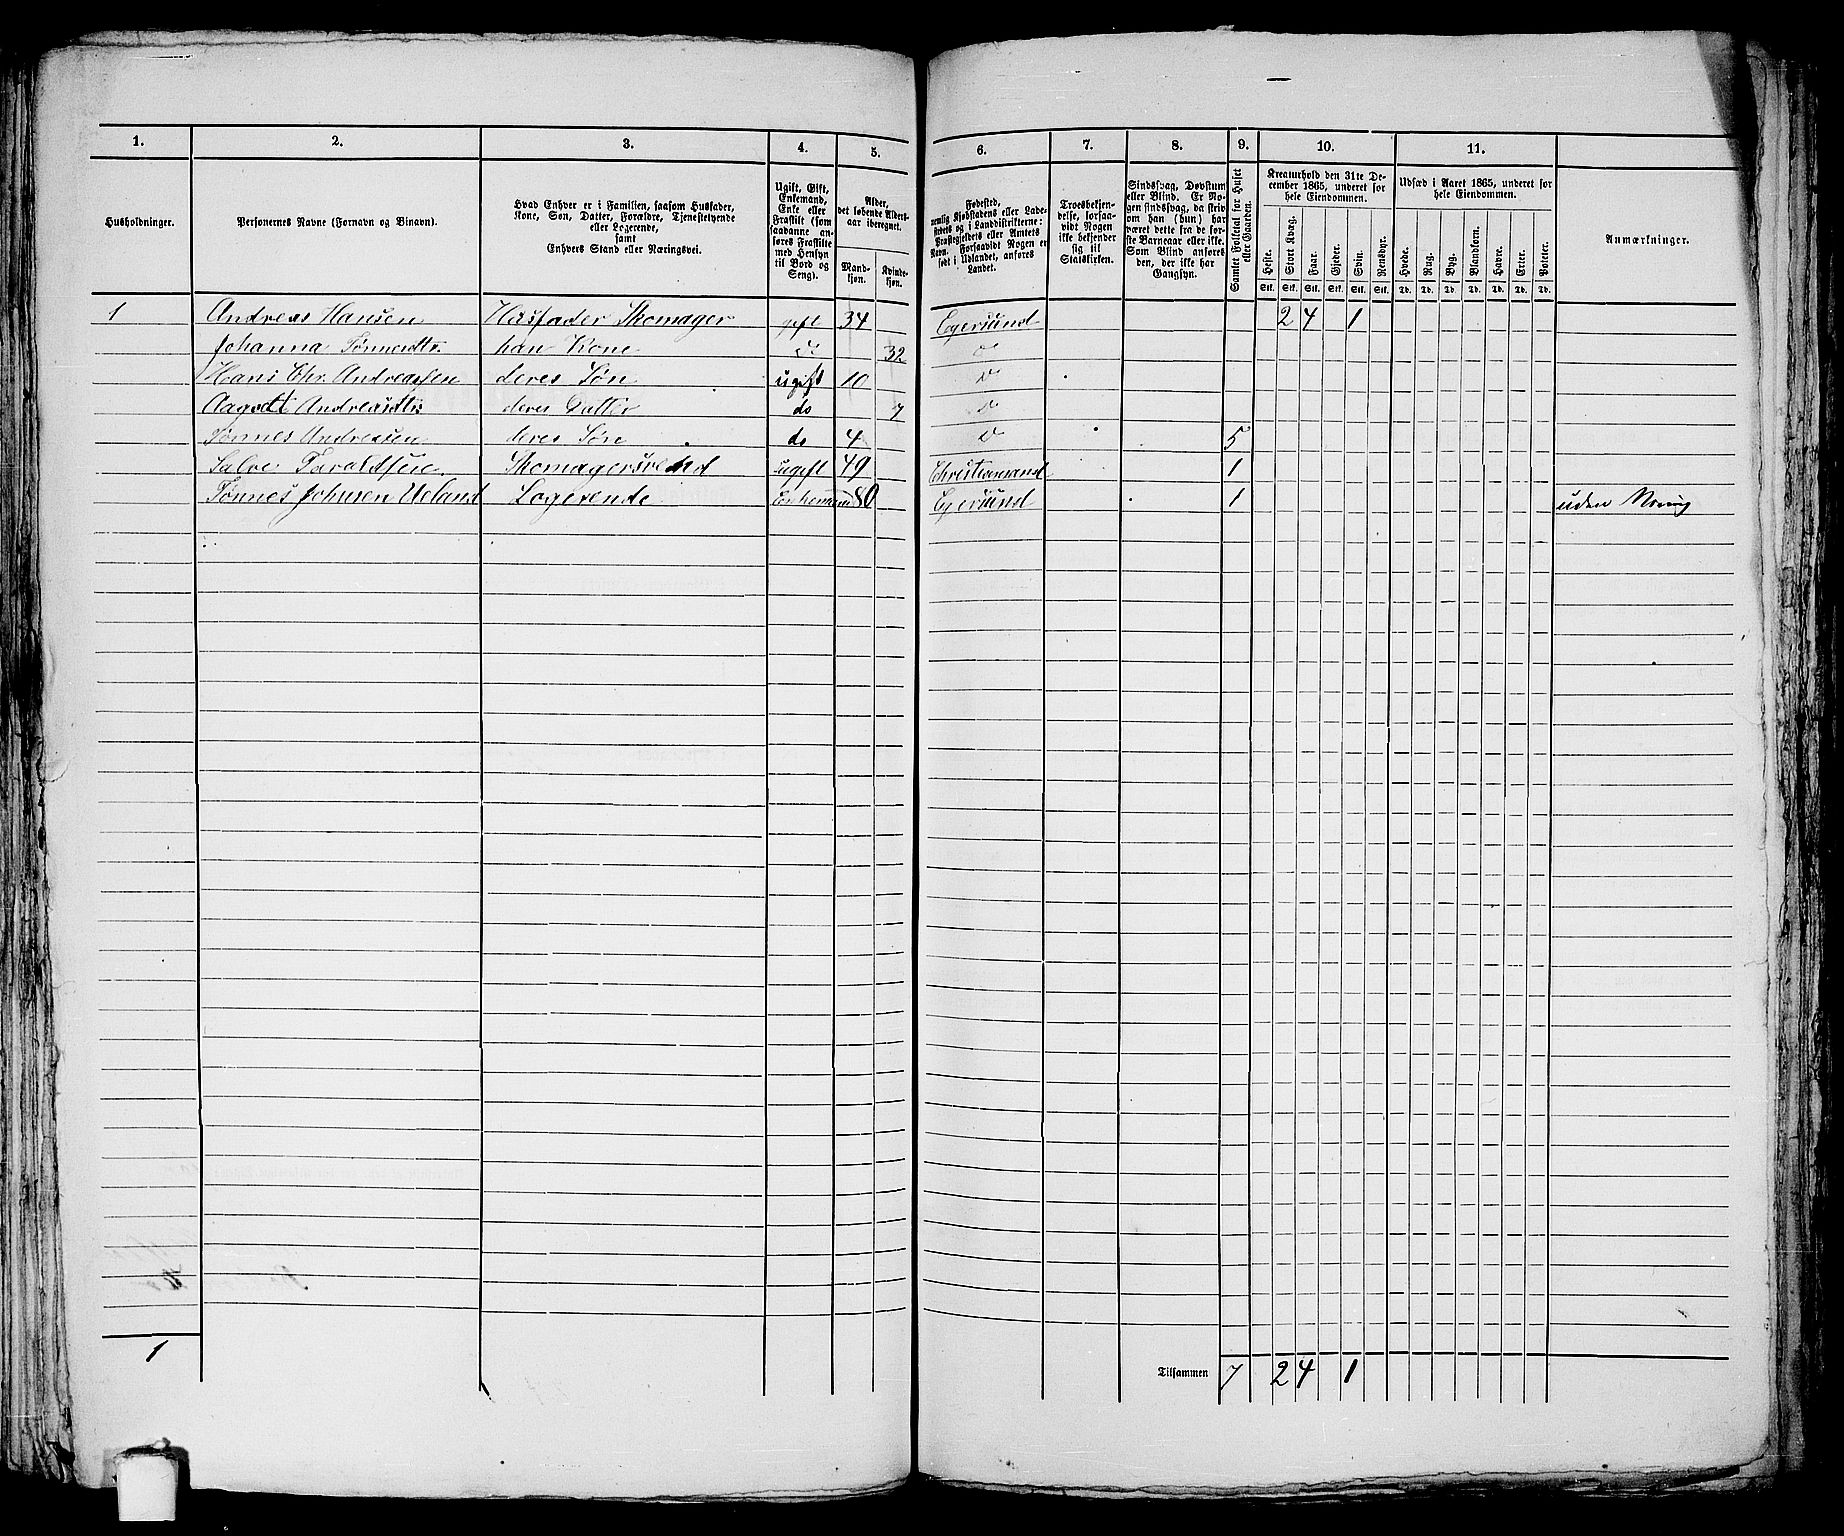 1. 2. 3. 4. 5. 6. 7. 8. 9. 10. 11.
Husholdninger.
Personernes Navne (Fornavn og Binavn).
Hvad Enhver er i Familien, saasom Husfader,
Kone, Søn, Datter, Forældre, Tjenestetyende
eller Logerende,
samt
Enhvers Stand eller Næringsvei.
Ugift, Gift,
Enkemand,
Enke eller
Fraskilt (som
saadanne an-
føres Fraskilte
med Hensyn
til Bord og
Seng).
Alder,
det løbende Alders-
aar iberegnet.
Mand-
kjøn.
Kvinde-
kjøn.
Fødested,
nemlig Kjøbstadens eller Lade-
stedets og i Landdistrikterne:
Præstegjeldets eller Amtets
Navn. Forsaavidt Nogen er
født i Udlandet, anføres
Landet.
Troesbekjen-
delse, forsaa-
vidt Nogen
ikke bekjender
sig til
Statskirken.
Sindssvag, Døvstum
eller Blind. Er No-
gen sindssvag, da skriv
om han (hun) har
været dette fra de før-
ste Barneaar eller ikke.
Som Blind anføres
den, der ikke har
Gangsyn.
Samlet Folketal for Huset
eller Gaarden.
Kreaturhold den 31te De-
cember 1865, underet for
hele Eiendommen.
Heste. Stort Kvæg. Faar. Gjeder. Svin. Rensdyr.
Stk. Stk. Stk. Stk. Stk. Stk.
Udsæd i Aaret 1865, underet for
hele Eiendommen.
Hvede. Rug. Byg. Blandkorn. Havre. Erter. Poteter.
Td. Td. Td. Td. Td. Td. Td.
Anmærkninger.
1 Andreas Hansen Husfader Skomager gift 34 Egersund 2 4 1
Johanna Tønnesdtr. han Kone do 32 do
Hans Chr. Andreassen deres Søn ugift 10 do
Andreasdtr deres Datter do 7 do
Tønnes Andreasen deres Søn do 4 do 5
Salve Taraldsen Skomagersvend ugift 49 Christiansand 1
Tønnes Johnsen Ueland Logerende Enkemand 80 Egersund 1 uden Næring
1 Tilsammen 7 2 4 1